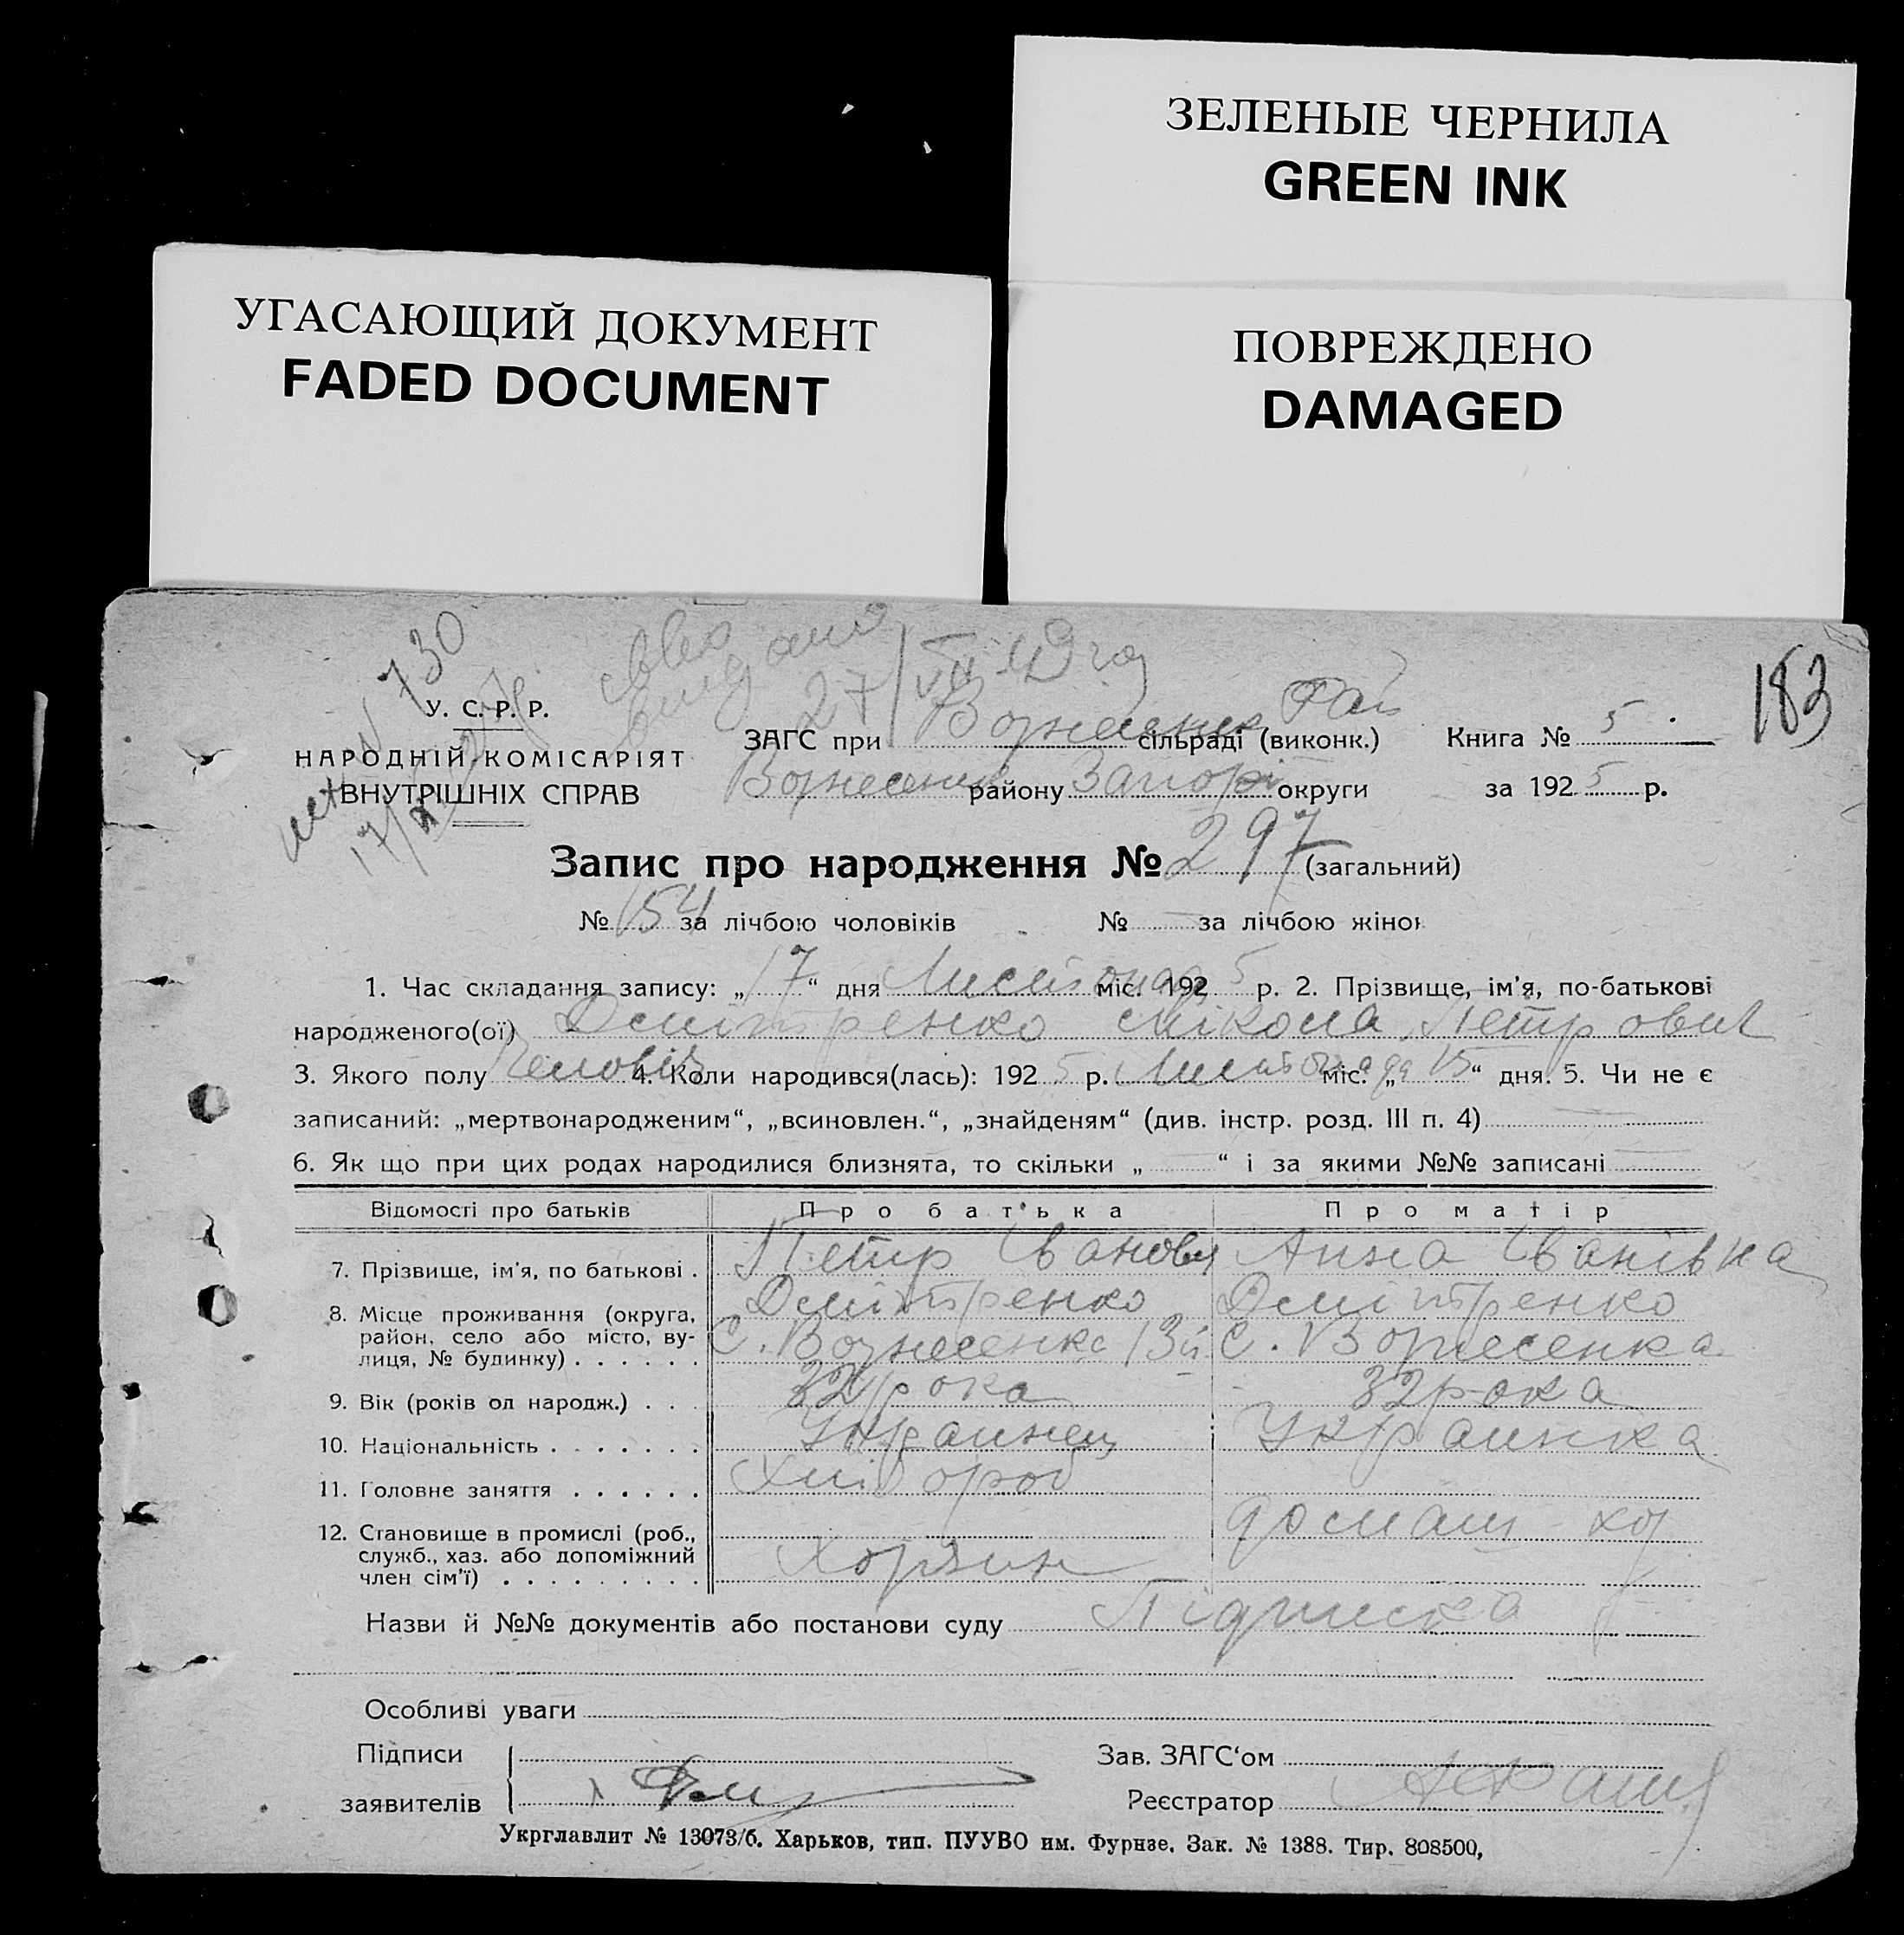 ЗЕЛЕНЫЕ ЧЕРНИЛА
GREEN INK
УГАСАЮЩИЙ ДОКУМЕНТ
FADED DOCUMENT
ПОВРЕЖДЕНО
DAMAGED
N 730
27/VII
183
У. С. Р. Р.
НАРОДНІЙ КОМІСАРІЯТ
ВНУТРІШНІХ СПРАВ
17/
ЗАГС при Вознесенка Рай сільраді (виконк.) Книга № 5
Вознесенка району Запоріж округи за 1925 р.
Запис про народження № 297 (загальний)
№ 154 за лічбою чоловіків № — за лічбою жінок
1. Час складання запису: „17“ дня Листопада міс. 1925 р. 2. Прізвище, ім'я, по-батькові
народженого(ої) Дмітренко Мікола Петрович
3. Якого полу Чоловік 4. Коли народився(лась): 1925 р. Листопада міс. „15“ дня. 5. Чи не є
записаний: „мертвонародженим“, „всиновлен.“, „знайденям“ (див. інстр. розд. III п. 4) —
6. Як що при цих родах народилися близнята, то скільки „ — “ і за якими №№ записані —
Відомості про батьків Про батька Про матір
7. Прізвище, ім'я, по батькові . Петр Іванович Анна Іванівна
Дмітренко Дмітренко
8. Місце проживання (округа, район, село або місто, вулиця, № будинку) . . . . . . С. Вознесенка С. Вознесенка
9. Вік (років од народж.) . . . 32 рока 32 рока
10. Національність . . . . . . . Украинец Украинка
11. Головне заняття . . . . . . Хлібороб
12. Становище в промислі (роб., служб., хаз. або допоміжний член сім'ї) . . . . . . . . . Хозяин домаш хоз
Назви й №№ документів або постанови суду Підписка
Особливі уваги
Підписи
заявителів
Зав. ЗАГС'ом
Реєстратор
Укрглавлит № 13073/б. Харьков, тип. ПУУВО им. Фурнзе. Зак. № 1388. Тир. 808500,